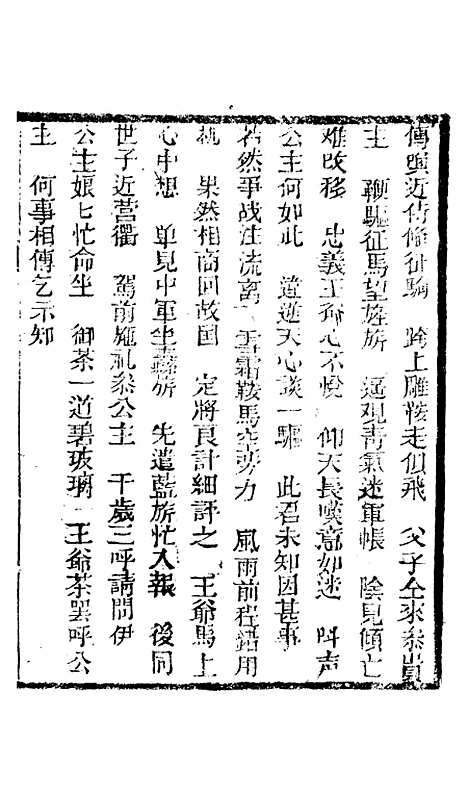 傳與近侍偹征騎　跨上雕鞍走似飛　父子仝來叅貴
主　鞭驅征馬望旌旂　遥观青氣迷軍帳　陰見傾亡
难改移　忠義王爺心不悅　仰天長嘆意如迷　叫声
公主何如此　道逆天心談一驅　此君未知因甚事
若然爭战注流离　霜鞍馬空劳力　風雨前程錯用
机　果然相商回故国　定將良計細評之　王爺馬上
心中想　单見中軍坐旂　先遣藍旂忙入報　後同
世子近营衢　駕前施礼叅公主　千歲三呼請問伊
公主娘匕忙命坐　御茶一道碧玻璃　王爺茶罢呼公
主　何事相傳乞示知